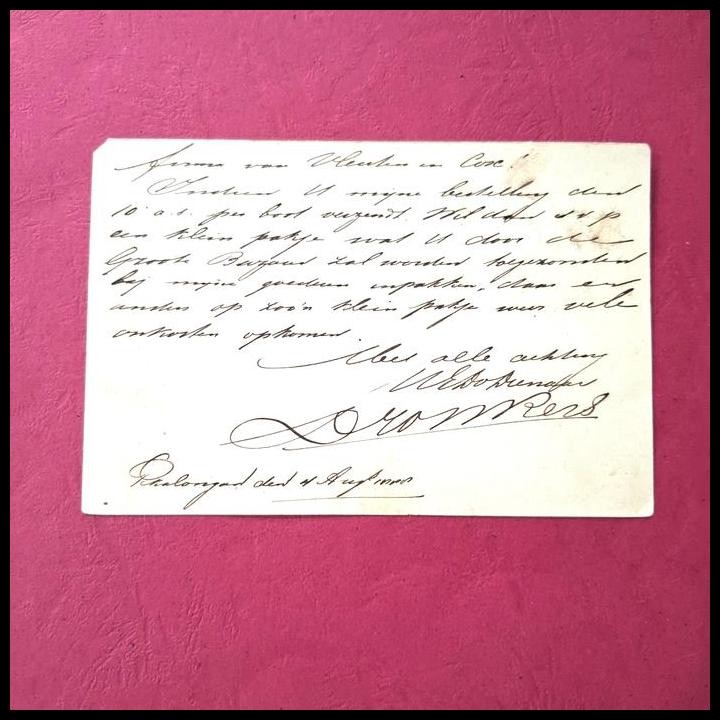 Firma van Vleuten en Cox!
Indien U mijne bestelling den
10 a.s. per boot verzendt. Wil dan s v p
een klein pakje wat U door de
Groote Bazaar zal worden toegezonden
bij mijne goederen inpakken, daar er
anders op zoo'n klein pakje weer vele
onkosten opkomen.
Met alle achting
UEDDDienaar
Dronkers
Pekalongan den 4 Aug 1888